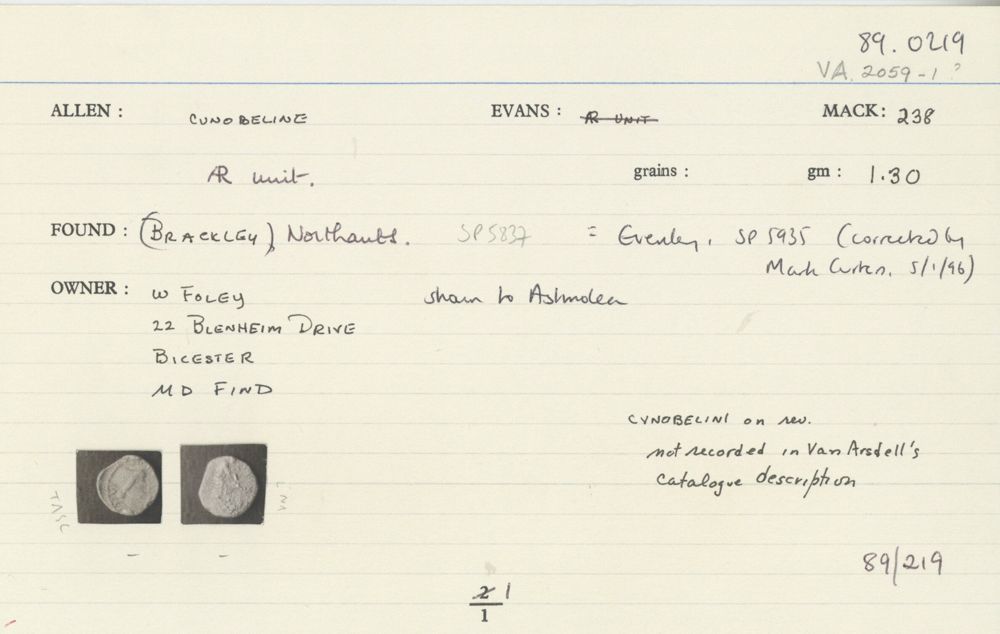 89.0219
VA. 2059-1?
ALLEN : CUNOBELINE EVANS : AR UNIT MACK: 238
AR unit. grains : gm : 1.30
FOUND : (BRACKLEY) Northants. SP5837 = Evenley, SP 5935 (corrected by
Mark Curteis, 5/1/96)
OWNER : W FOLEY shown to Ashmolean
22 BLENHEIM DRIVE
BICESTER
MD FIND
CVNOBELINI on rev.
not recorded in Van Arsdell's
catalogue description
TASC
89/219
2 1
1